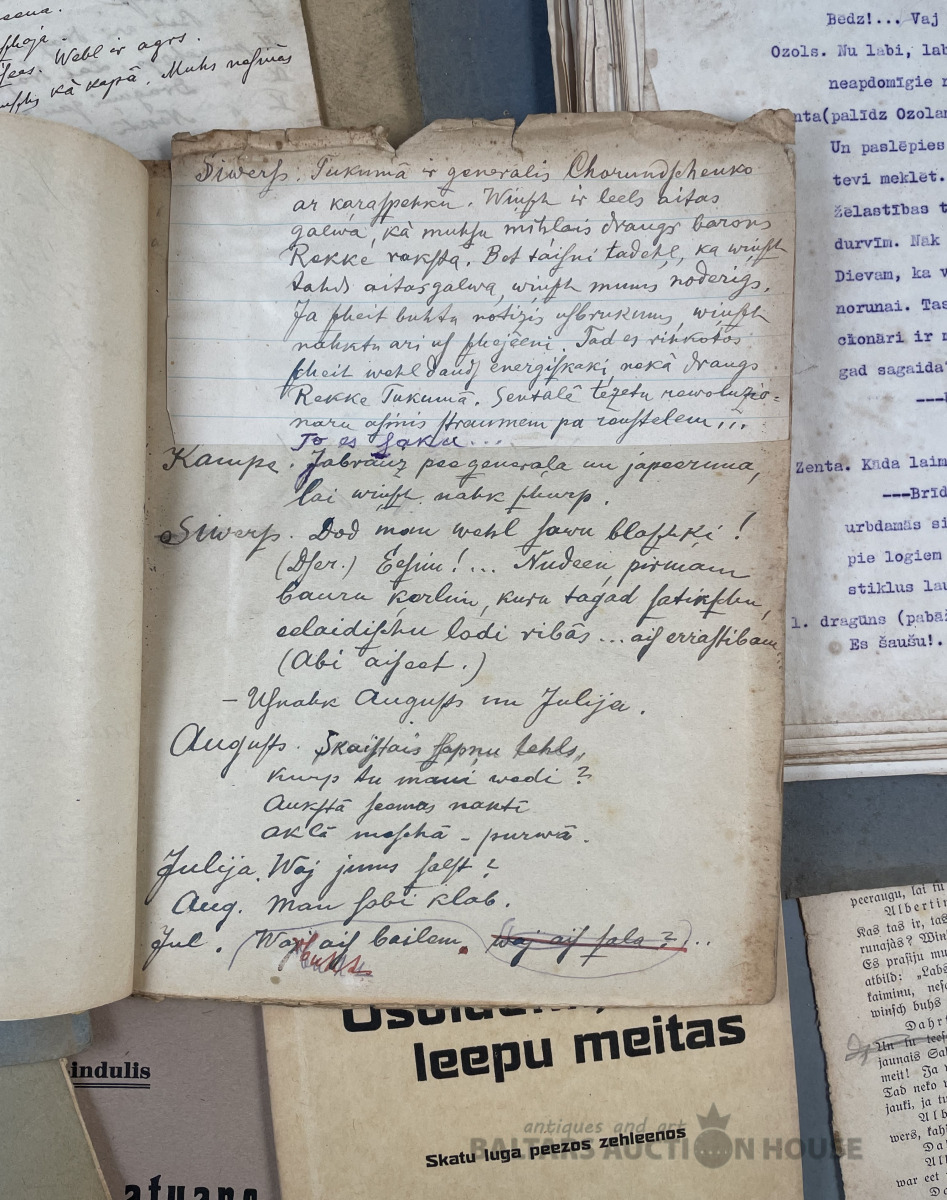 eena.
Wehl ir agrs.
kā kapā. Muhs nesinas
Bedz!... Vaj
Ozols. Nu labi, lab
neapdomīgie r
nta(palīdz Ozolam
Un paslēpies
tevi meklēt.
želastības t
durvīm. Nāk
Dievam, ka v
norunai. Tas
cionāri ir n
gad sagaida
Zenta. Kāda laim
---Brīd
urbdamās si
pie logiem
stiklus lau
1. draguns (pabāz
Es šaušu!.
Siwerſs. Tukumā ir generalis Chorundſchenko
ar karaſpehku. Winſch ir leels aitas
galwa, kā muhſu mihlais draugs barons
Rekke rakſta. Bet taiſni tadehļ, ka winſch
tahds aitasgalwa, winſch mums noderigs.
Ja ſcheit buhtu notizis uſbrukums, winſch
nahktu ari uſ ſchejeeni. Tad es rihkotos
ſcheit wehl daudſ energiſkaki nekā draugs
Rekke Tukumā. Sentalē tezetu rewoluzio=
naru aſinis ſtraumem pa renſtelem...
To es ſaku...
Kampe. Jabrauz pee generala un japeerunā,
lai winſch nahk ſchurp.
Siwerſs. Dod man wehl ſawu blaſchki!
(Dſer.) Eeſim!... Nudeen pirmam
lauru kerlim, kuru tagad ſatikſchu,
eelaidiſchu lodi ribās... aiſ errastibam...
(Abi aiſeet.)
– Uſnahk Auguſts un Julija.
Auguſts. Skaiſtais ſapņu tehls,
kurp tu mani wedi?
Aukſtā ſeemas naktī
aklā meſchā – purwā.
Julija. Waj jums ſalſt?
Aug. Man ſobi klab.
Jul. Waj aiſ bailem. Waj aiſ ſala?..
Osolu
leepu meitas
Skatu luga peezos zehleenos
indulis
atuano
peeraugu, lai tu
Albertin
Kas tas ir, tas
runajàs? Winſ
Es praſiju mu
atbild: „Labs
kaiminu, neſe
winſch buhs
Dahr
Un tu teeſ
jaunais Sal
meit! Ja n
Tad neko w
jauki, ja tu
Alb
wers, kahl
Da
Alb
war eet
antiques and art
BALTARS AUCTION HOUSE